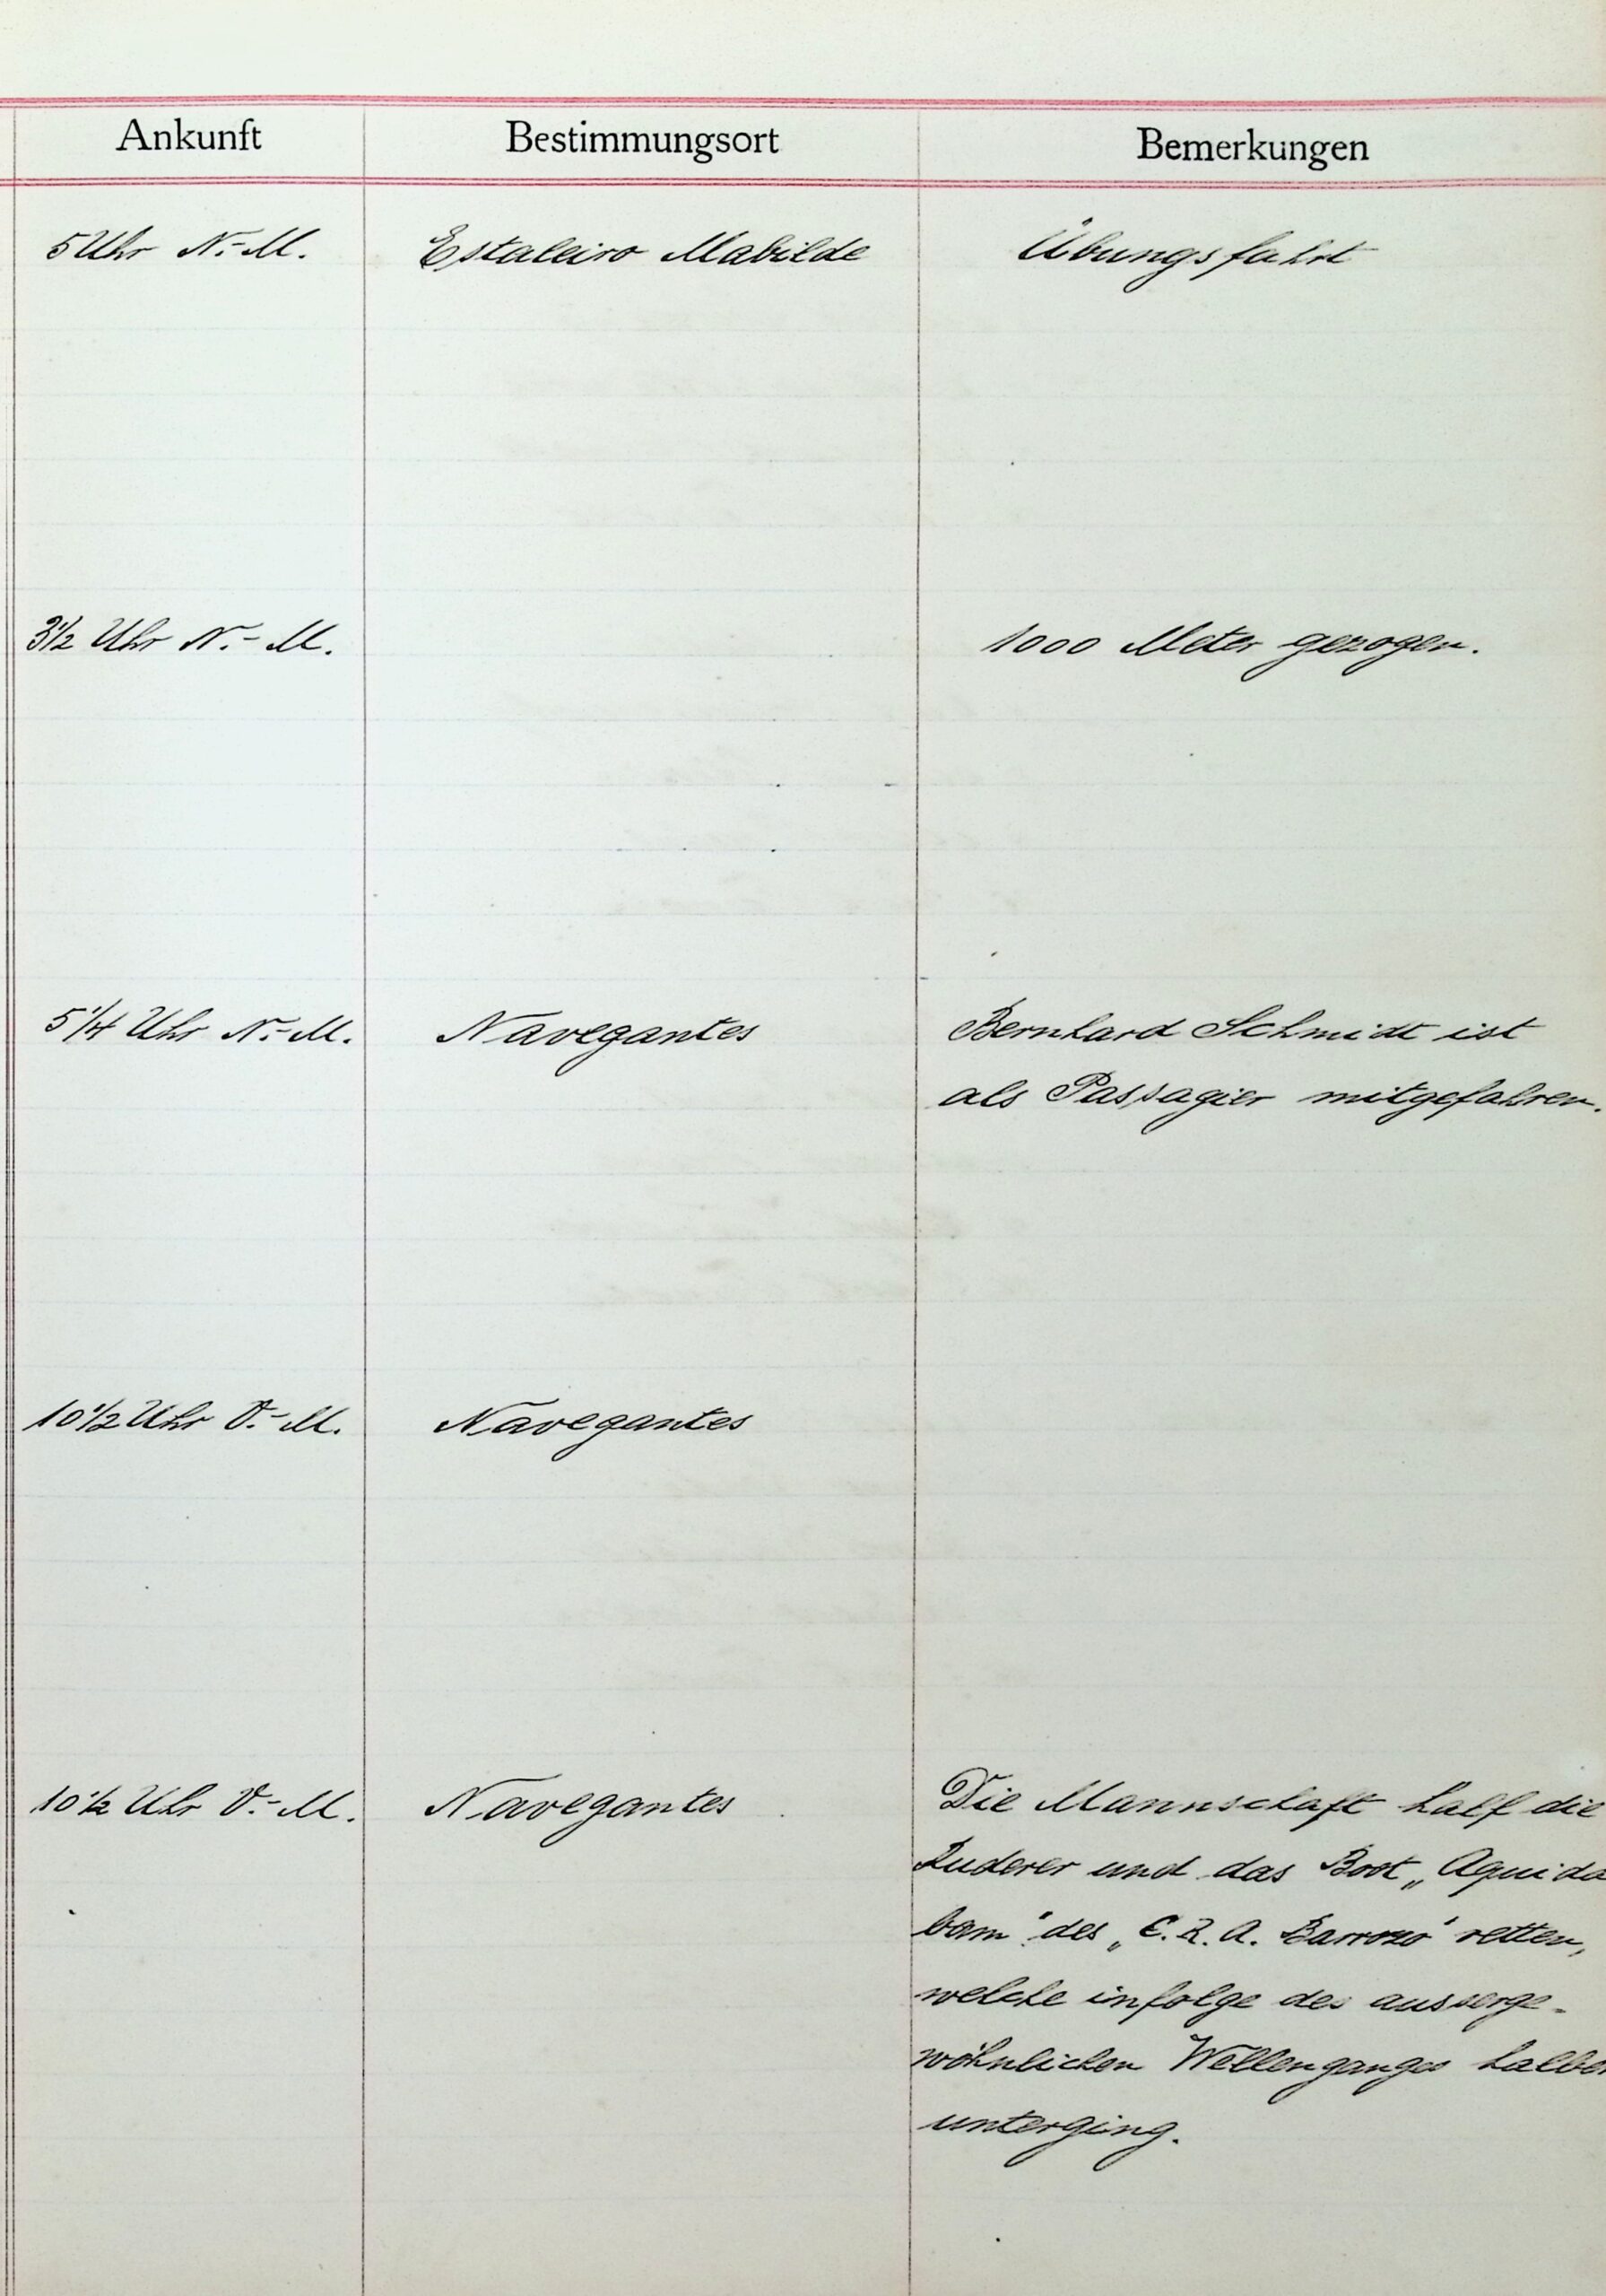 Ankunft Bestimmungsort Bemerkungen
5 Uhr N.-M. Estaleiro Mabilde Übungsfahrt
3½ Uhr N.-M. 1000 Meter gezogen.
5¼ Uhr N.-M. Navegantes Bernhard Schmidt ist
als Passagier mitgefahren.
10½ Uhr V.-M. Navegantes
10½ Uhr V.-M. Navegantes Die Mannschaft half die
Ruderer und das Boot „Aquida
bam" des „C.R.A. Barrozo" retten,
welche infolge des ausserge-
wöhnlichen Wellenganges halber
unterging.